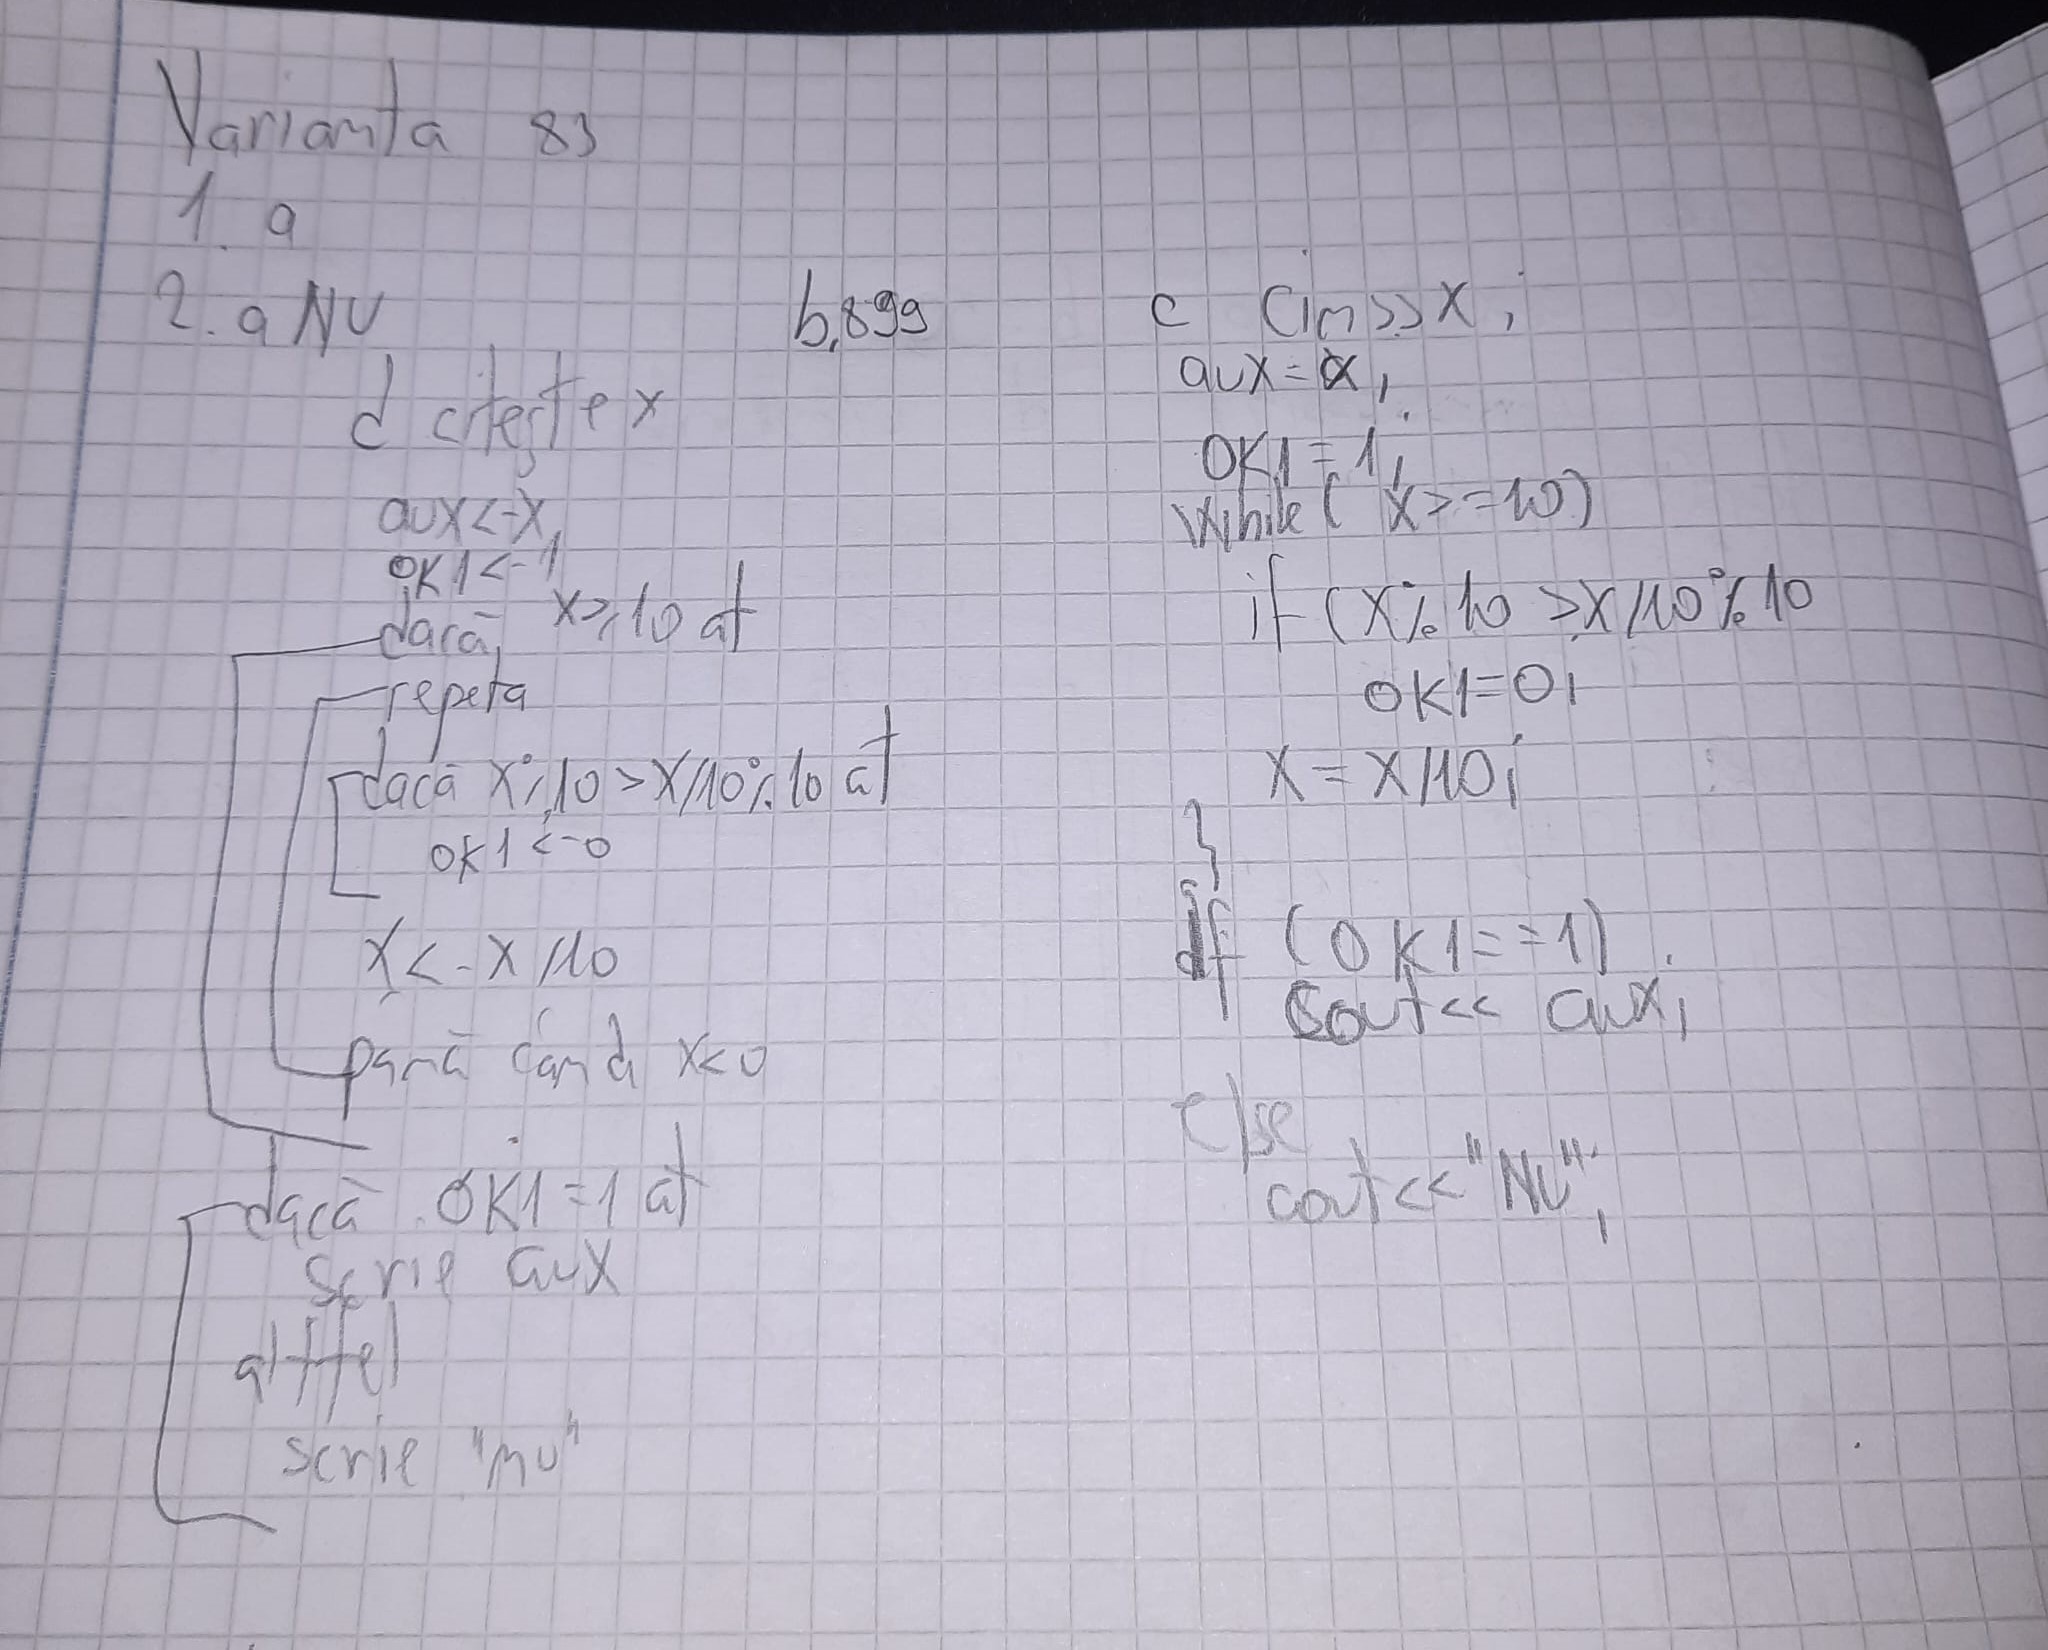 Varianta 83
1. a
2. a NU
b, 899
d citește x
aux<-x,
ok1<-1
dacă x>,10 at
repeta
dacă x%10>x/10%10 at
ok1<-0
x<-x/10
pană cand x<0
dacă ok1=1 at
scrie aux
altfel
scrie "nu"
c Cin>>x;
aux=x;
OK1=1;
While( x>=10)
if (x%10>x/10%10
ok1=0;
x=x/10;
}
if (OK1==1)
Cout<< aux;
else
cout<<"NU";